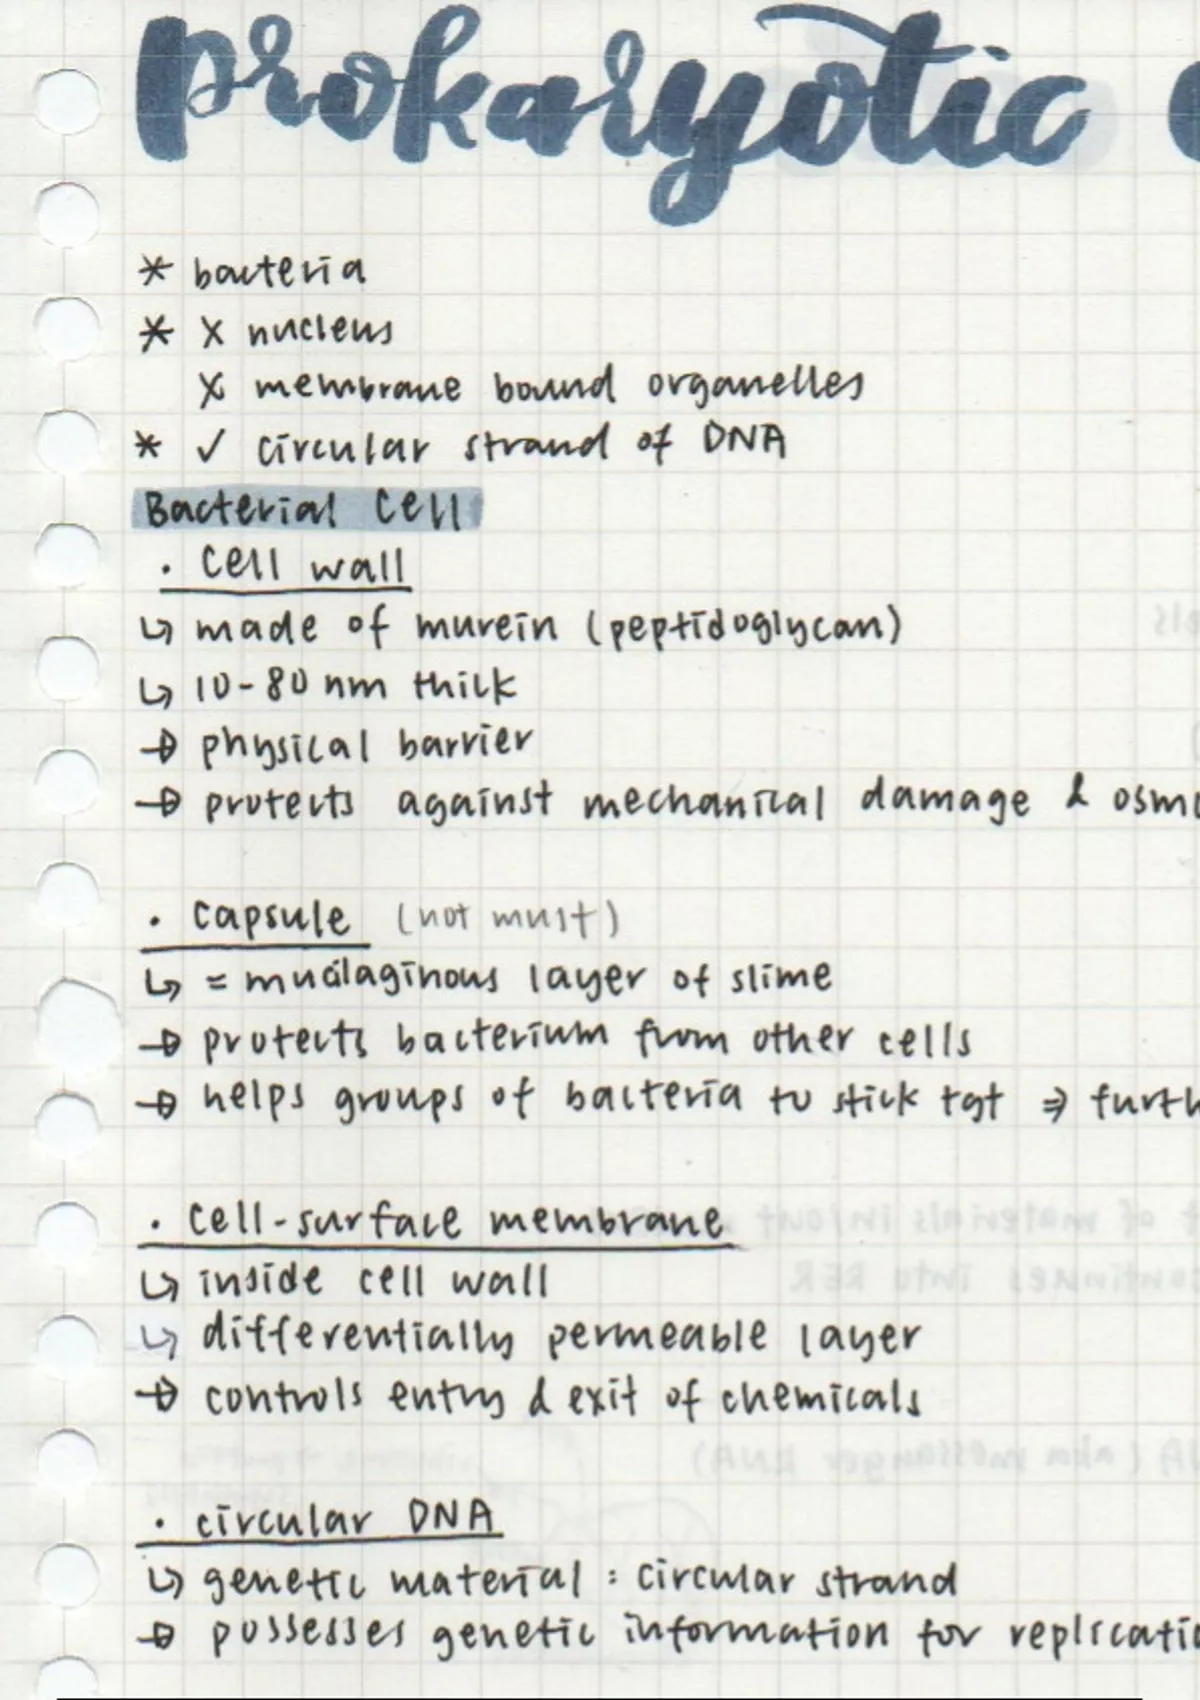 Prokaryotic
* bacteria
* X nucleus
X membrane bound organelles
* ✓ circular strand of DNA
Bacterial Cell
• Cell wall
↳ made of murein (peptidoglycan)
↳ 10-80 nm thick
→ physical barrier
→ protects against mechanical damage & osmo
• Capsule (not must)
↳ = mucilaginous layer of slime
→ protects bacterium from other cells
→ helps groups of bacteria to stick tgt ⇒ furth
• Cell-surface membrane
↳ inside cell wall
↳ differentially permeable layer
→ controls entry & exit of chemicals
• circular DNA
↳ genetic material : circular strand
→ possesses genetic information for replicatio